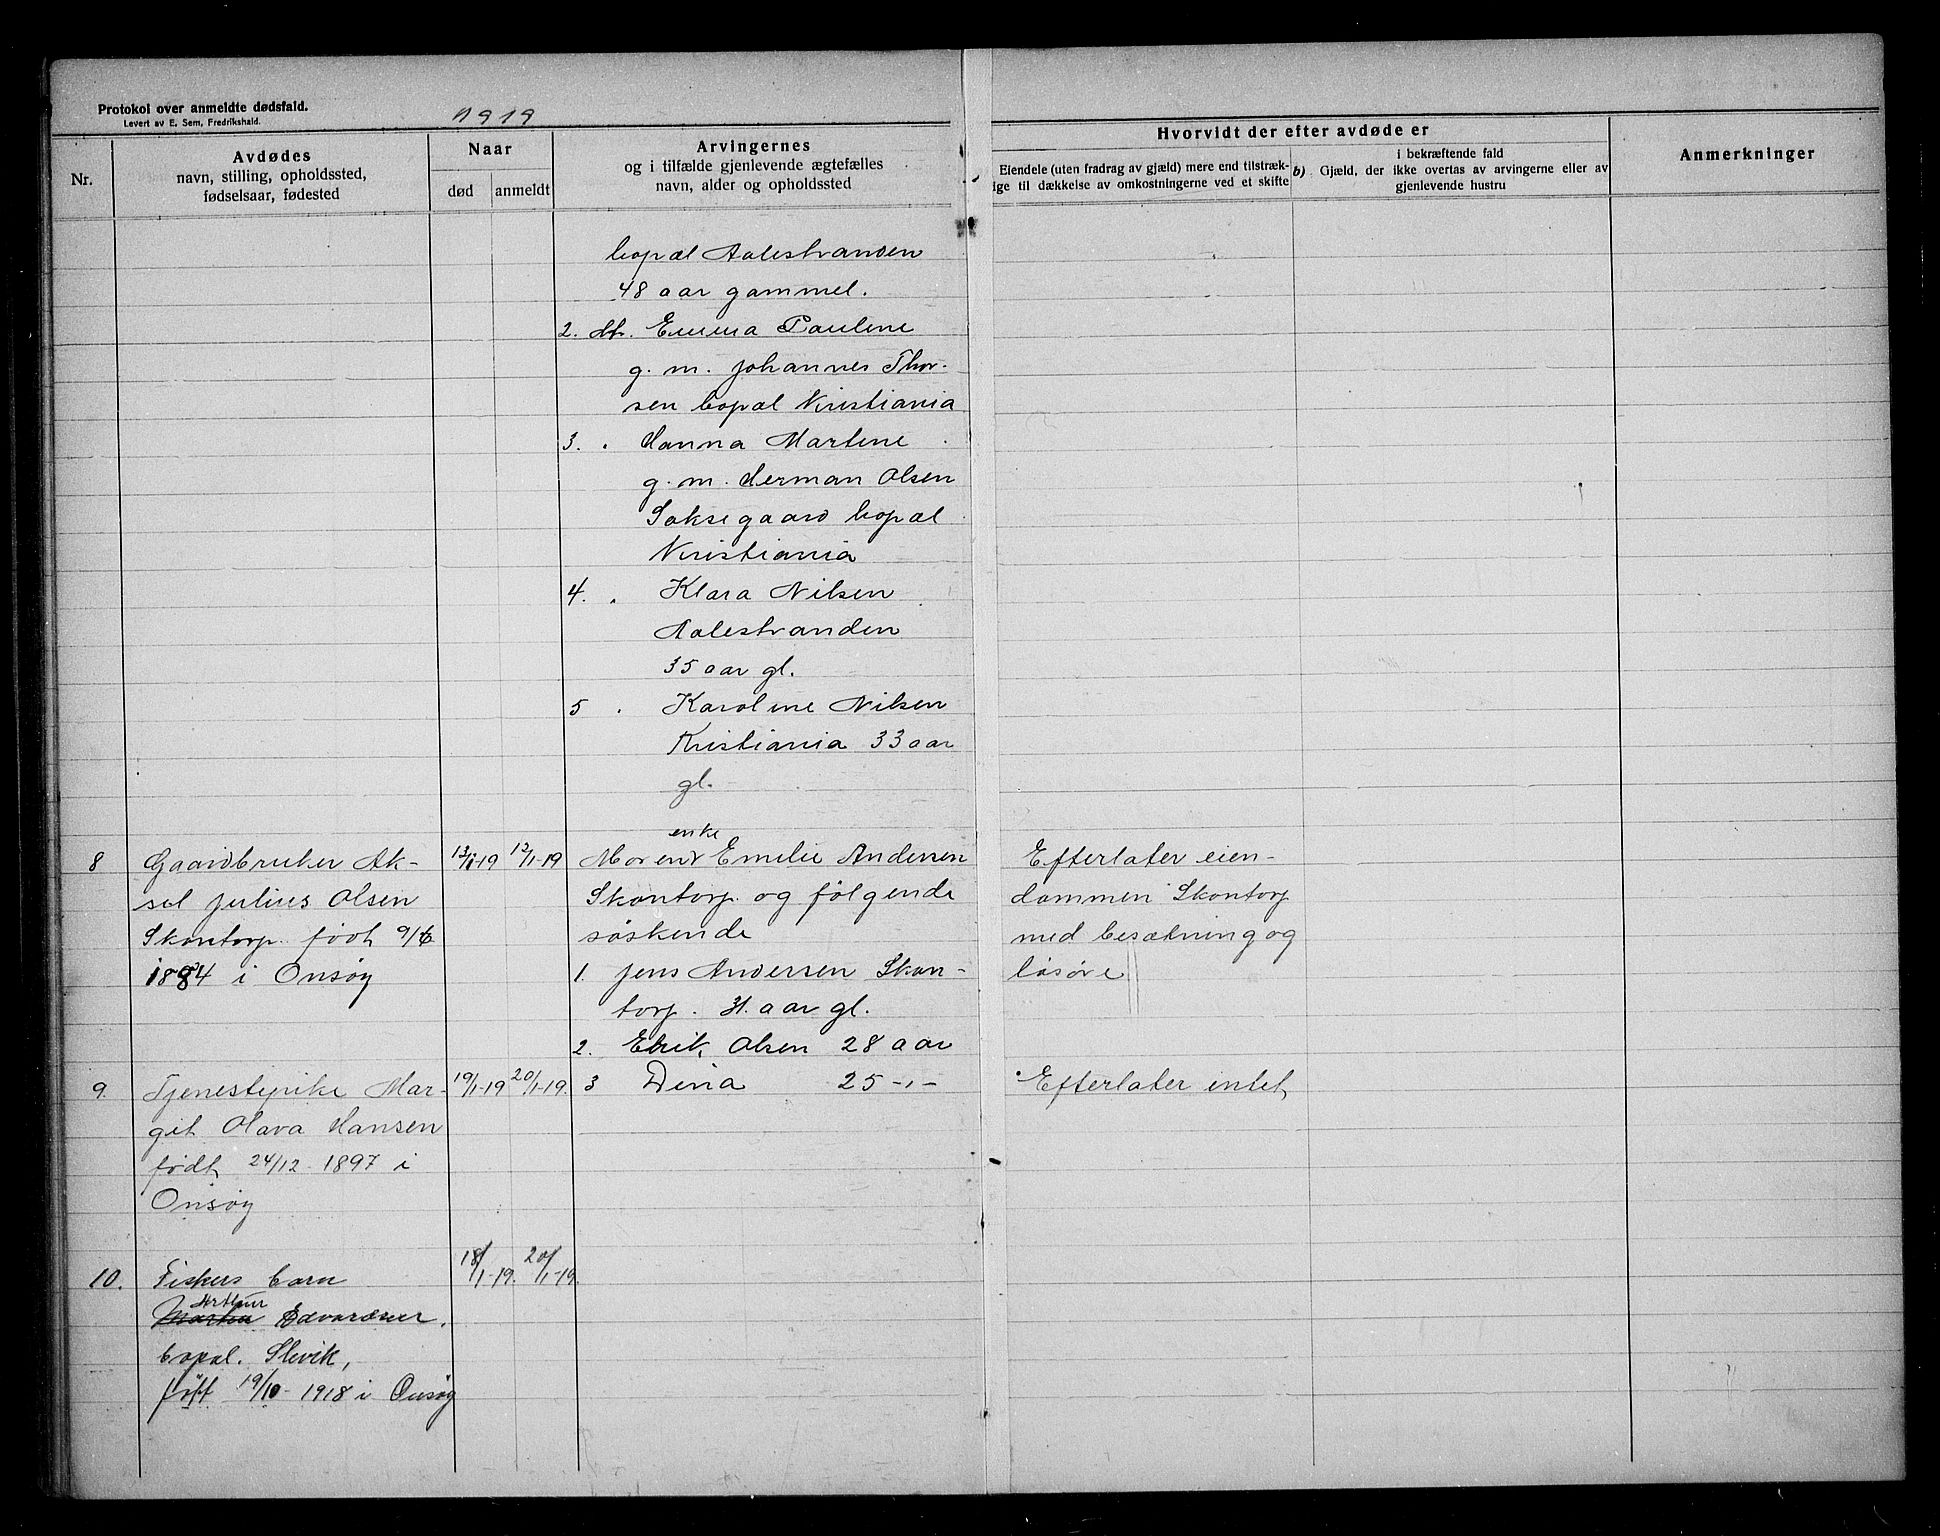 Protokol over anmeldte dødsfald.
Levert av E. Sem, Fredrikshald.
1919
Nr.
Avdødes
navn, stilling, opholdssted,
fødselsaar, fødested
Naar
død
anmeldt
Arvingernes
og i tilfælde gjenlevende ægtefælles
navn, alder og opholdssted
Hvorvidt der efter avdøde er
Eiendele (uten fradrag av gjæld) mere end tilstræk-
ige til dækkelse av omkostningerne ved et skifte
i bekræftende fald
b) Gjæld, der ikke overtas av arvingerne eller av
gjenlevende hustru
Anmerkninger
bopæl Aalestranden
48 aar gammel.
2. dtr. Emma Pauline
g. m. Johannes Thor-
sen bopæl Kristiania
3. " Hanna Martine
g. m. Herman Olsen
Saksegaard bopæl
Kristiania
4. " Klara Nilsen
Aalestranden
35 aar gl.
5 " Karoline Nilsen
Kristiania 33 aar
gl.
8
Gaardbruker Ak-
sel Julius Olsen
Skontorp. født 9/6
1884 i Onsøy
13/1-19
13/1-19
enke
Moren Emilie Andersen
Skontorp og følgende
søskende
1. Jens Andersen Skon-
torp. 31. aar gl.
2. Erik Olsen 28 aar
3 Dina 25 -"-
Efterlater eien-
dommen Skontorp
med besætning og
løsøre
9.
Tjenestepike Mar-
git Olava Hansen
født 24/12 1897 i
Onsøy
19/1-19
20/1-19.
Efterlater intet
10.
Fiskers barn
Arthur
Martin Edvardsen.
bopæl. Slevik,
født 19/10-1918 i Onsøy
18/1-19.
20/1-19.